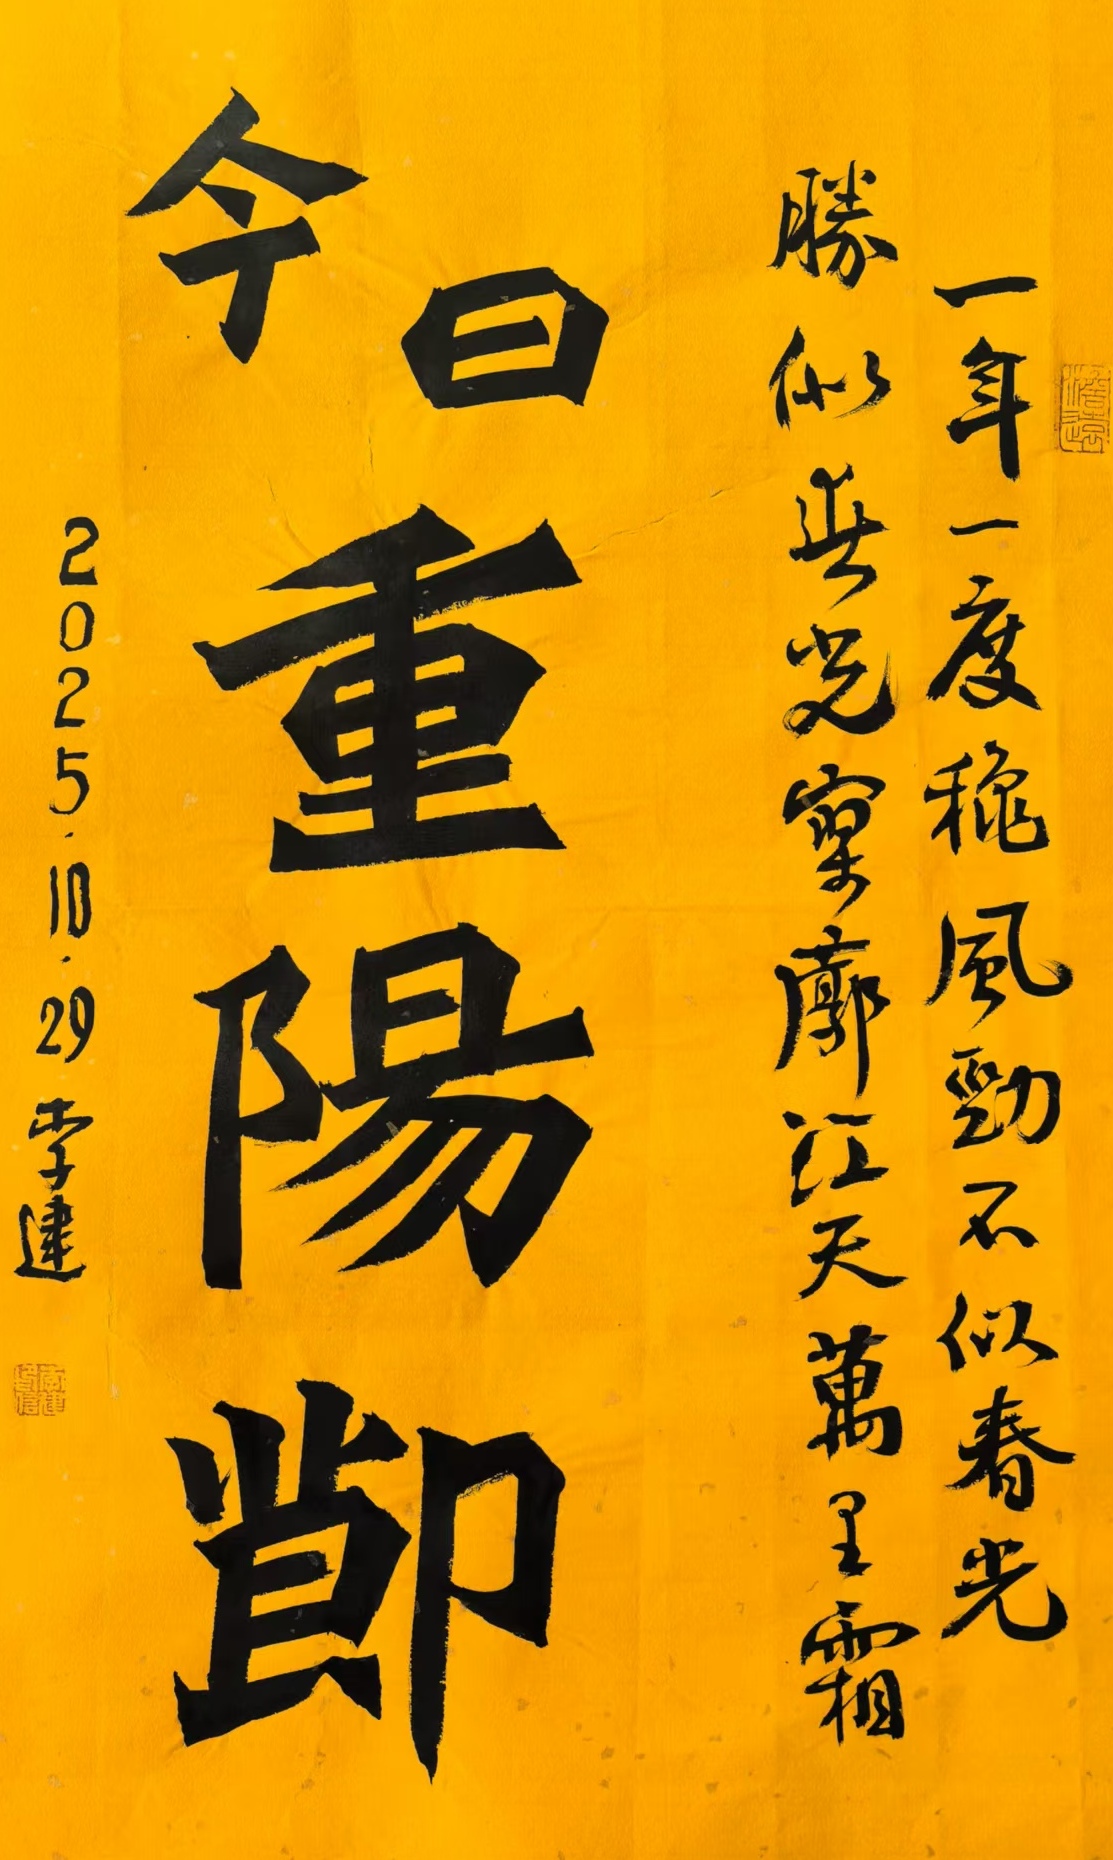 一年一度穐風勁不似春光
勝似春光寥廓江天萬里霜
今日重陽節
2025.10.29 李建